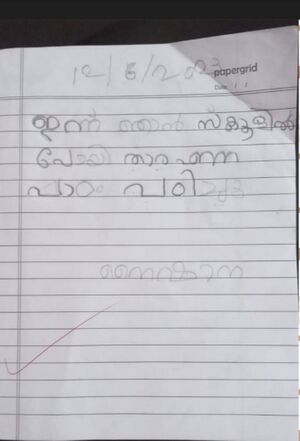 12/6/2023
papergrid
Date: / /
ഇന്ന് ഞാൻ സ്കൂളിൽ
പോയി താര എന്ന
പാഠം പഠിച്ചു